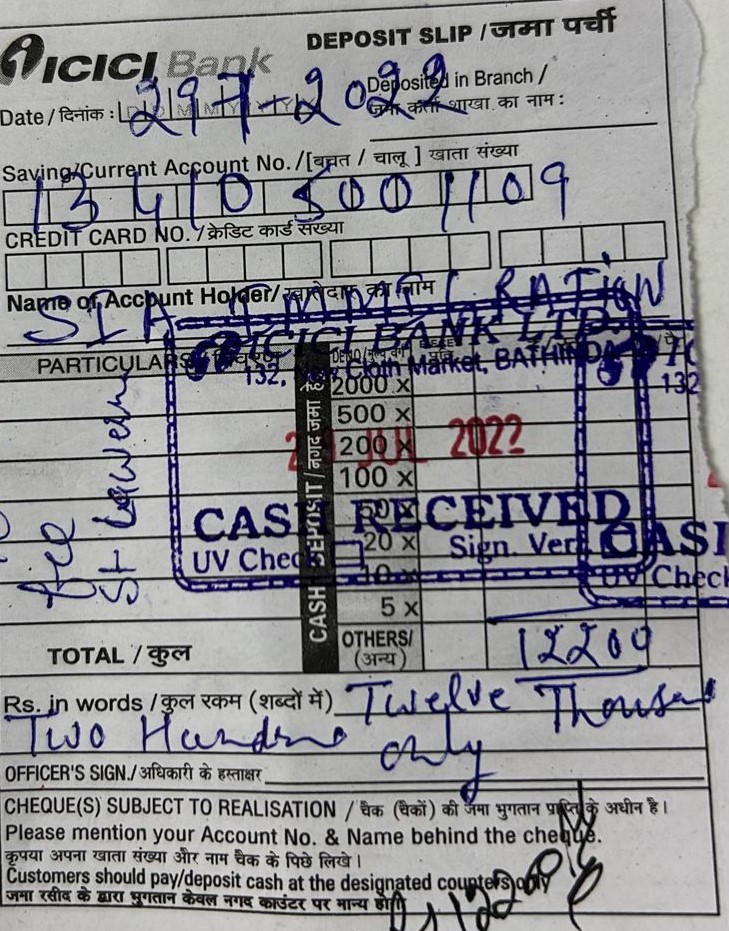 ICICI Bank
DEPOSIT SLIP / जमा पर्ची
Date / दिनांक : 29 7 - 2022
Deposited in Branch /
जमा कर्ता शाखा का नाम :
Saving/Current Account No. / [बचत / चालू ] खाता संख्या
134105001109
CREDIT CARD NO. / क्रेडिट कार्ड संख्या
Name of Account Holder/ खातेदार का नाम
SIA IMMIGRATION
ICICI BANK LTD
132, Cloth Market, BATHINDA
132
PARTICULARS / विवरण
CASH DEPOSIT / नगद जमा
2000 x
500 x
200 x
100 x
50 x
20 x
10 x
5 x
OTHERS/
(अन्य)
JUL 2022
CASH RECEIVED
UV Chec Sign. Ver
CASH
UV Check
Fee
TOTAL / कुल 12200
Rs. in words / कुल रकम (शब्दों में) Twelve Thousand
Two Hundred only
OFFICER'S SIGN./ अधिकारी के हस्ताक्षर
CHEQUE(S) SUBJECT TO REALISATION / चैक (चैकों) की जमा भुगतान प्राप्ति के अधीन है।
Please mention your Account No. & Name behind the cheque.
कृपया अपना खाता संख्या और नाम चैक के पिछे लिखे।
Customers should pay/deposit cash at the designated counter(s) only
जमा रसीद के द्वारा भुगतान केवल नगद काउंटर पर मान्य होगी